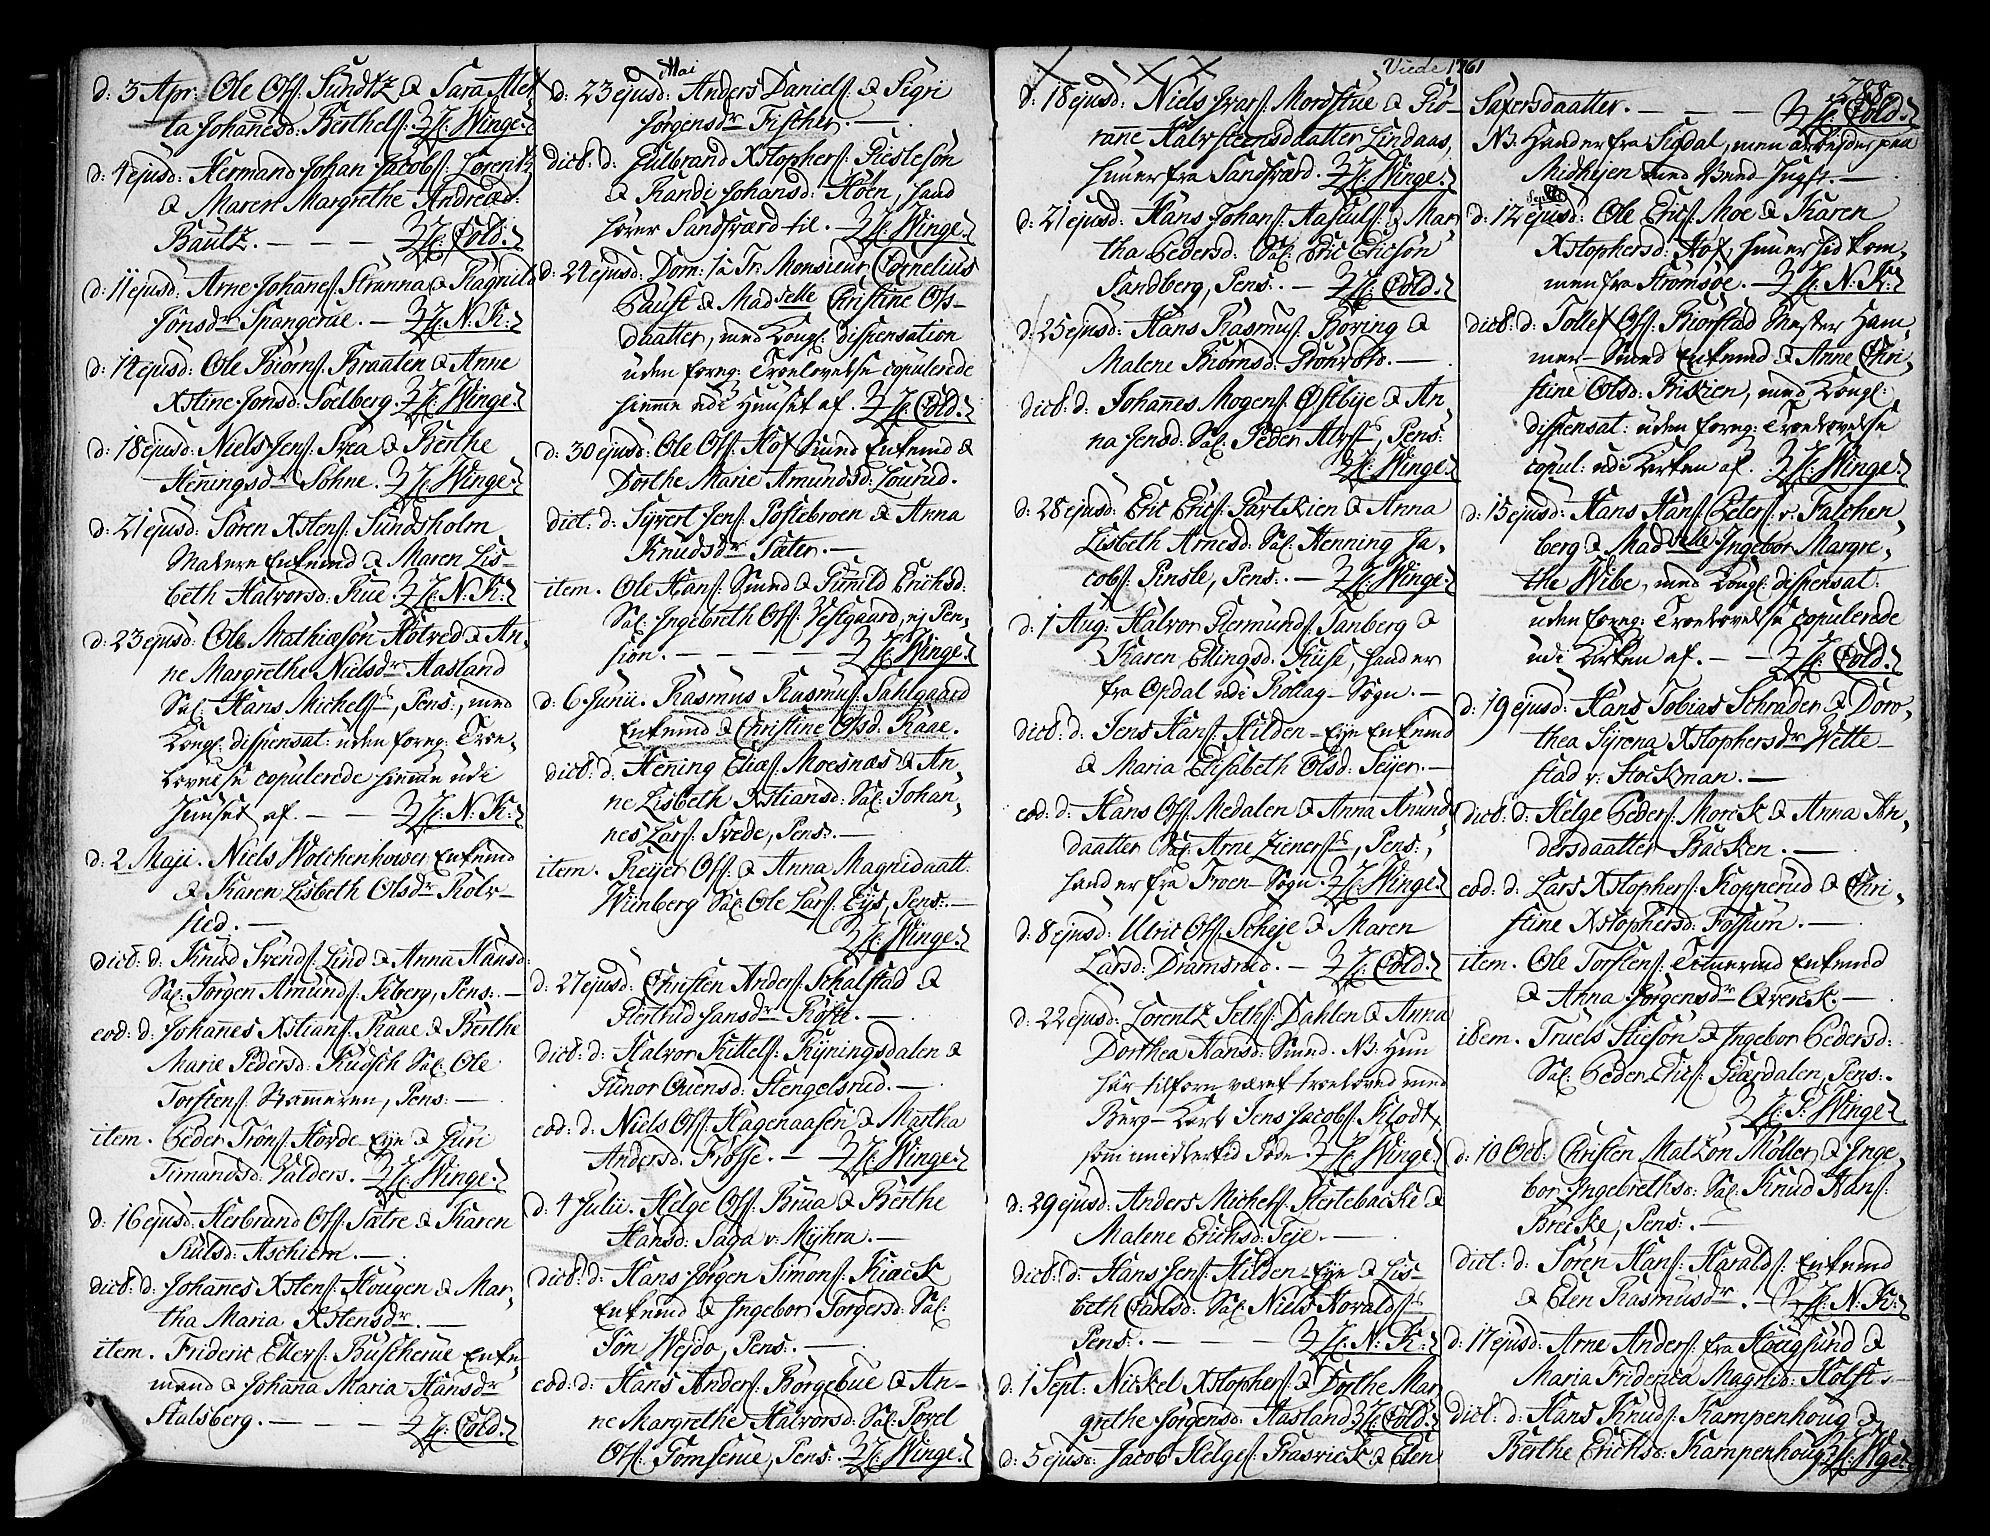 d: 3 Apr: Ole Ols: Sundtz & Sara Mle
ta Johanesd: Berthels: Hr: Winge.
d: 4 ejusd: Hermand Johan Jacobs: Lorentz
& Maren Margrethe Andreæd:
Bautz. — — — Hr: Cold.
d: 11 ejusd: Arne Johanes: Stranna & Ragnild
Jönsdr Spangerue. — Hr: N: K:
d: 14 ejusd: Ole Biörns: Braaten & Anne
Xstine Jonsd: Soelberg. Hr: Winge.
d: 18 ejusd: Niels Jens: Svea & Berthe
Heningsdr Sohne. Hr: Winge.
d: 21 ejusd: Sören Xstens: Sundsholm
Enkemd & Maren Lis-
beth Halvorsd: Rue. Hr: N: K:
d: 23 ejusd: Ole Mathiæsön Holved & An-
ne Margrethe Nielsdr Aasland
Sal: Hans Michels:, Pens:, med
Kongl: dispensat: uden foreg: Troe-
lovelse copulerede hiemme udi
Huuset af. — — Hr: N: K:
d: 2 Maji. Niels Wolckenhower Enkemd
& Karen Lisbeth Olsdr Kolv-
sted. —
dict: d: Knud Svends: Lind & Anna Hansd:
Sal: Jörgen Amunds: Kiberg, Pens: —
eod: d: Johanes Xstians: Raae & Berthe
Marie Pedersd: Kudsch Sal: Ole
Torstens: , Pens: —
item. Peder Tröns: Horde-Eye & Guri
Timandsd: Valders. Hr: Winge.
d: 16 ejusd: Herbrand Ols: Sätre & Karen
Kulsd: Aschiem. —
dict: d: Johanes Xstens: Hougen & Mar-
tha Maria Xstensdr. —
item. Frideric Ellers: Buscherue Enke-
mand & Johana Maria Hansdr
Stalsberg. — — — Hr: Cold.
Mai
d: 23 ejusd: Anders Daniels: & Sigri
Jörgensdr Fischer. —
dict: d: Gulbrand Xstophers: Giesleson
& Randi Johansd: Höen, hand
hörer Sandsværd til. — Hr: Winge.
d: 24 ejusd: Dom: 1 à Tr: Monsieur Cornelius
Paust & Madselle Christine Ols-
daatter, med Kongl: dispensation
uden foreg: Troelovelse copulerede
hiemme udi Huuset af. Hr: Cold.
d: 30 ejusd: Ole Ols: Hof Smed Enkemd &
Dorthe Marie Amundsd: Lourud.
dict: d: Syvert Jens: Postebroen & Anna
Knudsdr Sæter. —
item. Ole Hans: Smed & Gunild Erichsd:
Sal: Ingebreth Ols: Vestgaard, ej Pen-
sion. — — — — Hr: Winge.
d: 6 Junii. Rasmus Rasmus: Sahlgaard
Enkemd & Christine Olsd: Raae.
dict: d: Hening Elias: Moesnæs & An-
ne Lisbeth Xstiansd: Sal: Johan-
nes Lars: Svede, Pens: —
item. Reijer Ols: & Anna Magnidaatt:
Wiinberg Sal: Ole Lars: Eys, Pens: —
Hr: Winge.
d: 27 ejusd: Christen Anders: Schalstad &
Gierthrud Jansdr Röste. —
dict: d: Halvor Kittels: Ryningsdalen &
Gunor Guensd: Stengelsrud. —
eod: d: Niels Ols: Hagenaasen & Martha
Andersd: Frösse. — Hr: Winge.
d: 4 Julii. Helge Ols: Brua & Berthe
Hansd: Saga v: Myhra. —
dict: d: Hans Jörgen Simons: Kiack
Enkemd & Ingebor Torgersd: Sal:
Jön Wejdo, Pens: —
eod: d: Hans Anders: Börgebue & An-
ne Margrethe Halvorsd: Sal: Povel
Ols: Gomserue, Pens: Hr: Winge.
Viede 1761
d: 18 ejusd: Niels Ivars: Mordstue & Gio-
ranne Halvsteensdaatter Lindaas,
hun er fra Sandsværd. Hr: Winge.
d: 21 ejusd: Hans Johans: Aaskuls: & Mar-
tha Pedersd: Sal: Eric Ericsön
Sandberg, Pens: — Hr: Cold.
d: 25 ejusd: Hans Rasmus: Boring &
Malene Biörnsd: Grönvold. —
dict: d: Johannes Mogens: Østbye & An-
na Jensd: Sal: Peder Alvs:, Pens:
Hr: Winge.
d: 28 ejusd: Eric Erics: Partkien & Anna
Lisbeth Arnesd: Sal: Henning Ja-
cobs: Pinsle, Pens: — Hr: Winge.
d: 1 Aug: Halvor Germunds: Tanberg &
Karen Ellingsd: Kiise, hand er
fra Opdal udi Rollag-Sogn. —
dict: d: Jens Hans: Hilden-Eye Enkemd
& Maria Elisabeth Olsd: Teijer. —
eod: d: Hans Ols: Medalen & Anna Anund-
daatter Sal: Arne Zieners:, Pens:,
hand er fra Froen-Sogn. Hr: Winge.
d: 8 ejusd: Ulric Ols: Scheje & Maren
Larsd: Dramsrud. — Hr: Cold.
d: 22 ejusd: Lorentz Seths: Dahlen & Anna
Dorthea Hansd: Smed. NB: Hun
har tilforn været troelovet med
Berg-Karl Jens Jacobs: Klodt,
som imidlertid döde. Hr: Winge.
d: 29 ejusd: Anders Michels: Hertebacke &
Malene Erichsd: Teje. —
dict: d: Hans Jens: Hilden-Eye & Lis-
beth Carlsd: Sal: Niels Horalds:
Pens: — — — Hr: N: K:
d: 1 Sept: Nickel Xstophers: & Dorthe Mar-
grethe Jörgensd: Aasland Hr: Cold.
d: 5 ejusd: Jacob Helges: Grasvick & Elen
288
Saxersdaatter. — — — Hr: Cold.
NB: Hand er fra Sigdal, men arbeider paa
Midhejen med Vand Jught. —
Sept:
d: 12 ejusd: Ole Erics: Moe & Karen
Xstophersd: Hof, hun er hid kom-
men fra Strömsöe. — Hr: N: K:
dict: d: Tollef Ols: Biorstad Mester Ham-
mer-Smed Enkemd & Anne Chri-
stine Olsd: Friskien, med Kongl:
dispensat: uden foreg: Troelovelse
copul: udi Kirken af. Hr: Winge.
d: 15 ejusd: Hans Hans: Peters: v: Falchen-
berg & Madselle Ingebor Margre-
the Wibe, med Kongl: dispensat:
uden foreg: Troelovelse copulerede
udi Kirken af. — — Hr: Cold.
d: 19 ejusd: Hans Tobias Schrader & Doro-
thea Syrena Xstophersdr Wette-
stad v: Stockman. —
dict: d: Helge Peders: Morck & Anna An-
dersdaatter Backen. —
eod: d: Lars Xstophers: Kopperud & Chri-
stine Xstophersd: Fossum. —
item. Ole Torstens: Enkemd
& Anna Jörgensdr Qverck. —
idem. Truels Stiesön & Ingebor Pedersd:
Sal: Peder Erics: Giærdalen, Pens:
Hr: P: Winge.
d: 10 Oct: Christen Matzön Möller & Inge-
bor Ingebrethsd: Sal: Knud Hans:
Brecke, Pens: —
dict: d: Sören Hans: Haralds: Enkemd
& Elen Rasmusdr. — Hr: N: K:
d: 17 ejusd: Arne Anders: fra Hougsund &
Maria Friderica Magnid: Holst. —
dict: d: Hans Knuds: Kampenhoug &
Berthe Erichsd: Kampenhoug. Hr: Wge.